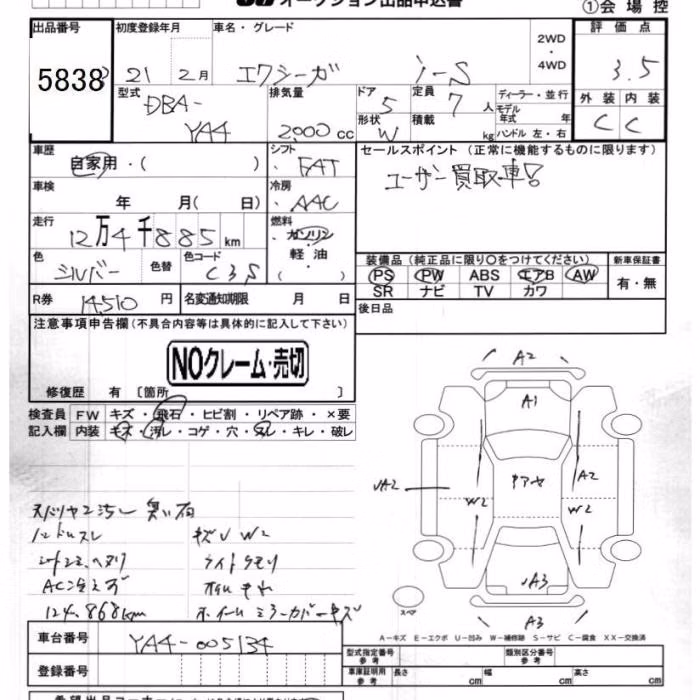 オークション出品申込書 ①会場控
出品番号 初度登録年月 車名・グレード 2WD 評価点
5838 21 2月 エクシーガ i-S ・4WD 3.5
型式 排気量 ドア 定員 ディーラー・並行 外装 内装
DBA- 5 7人 モデル年式 年 C C
YA4 2000cc 形状 W 積載 kg ハンドル 左・右
車歴 シフト セールスポイント (正常に機能するものに限ります)
自家用・( ) FAT ユーザー買取車!
車検 冷房
年 月( 日) AAC
走行 燃料
12万4千885km ・ガソリン
色 色替 色コード 軽油 装備品(純正品に限り○をつけてください) 新車保証書
シルバー C3S ( ) PS PW ABS エアB AW 有・無
SR ナビ TV カワ
R券 14,510円 名変通知期限 月 日 後日品
注意事項申告欄(不具合内容等は具体的に記入して下さい)
NOクレーム・売切
修復歴 有〔箇所 〕
検査員 FW キズ・飛石・ヒビ割・リペア跡・×要
記入欄 内装 キズ・汚レ・コゲ・穴・スレ・キレ・破レ
A2
A1
A2
W2
W2
A3
A3
スペア
AC冷えず
124,868km
キズU W2
ライトクモリ
ホイール ミラーカバーキズ
A-キズ E-エクボ U-凹み W-補修跡 S-サビ C-腐食 XX-交換済
車台番号 YA4-005134 型式指定番号 参考 類別区分番号 参考
登録番号 車庫証明用 参考 長さ cm 幅 cm 高さ cm